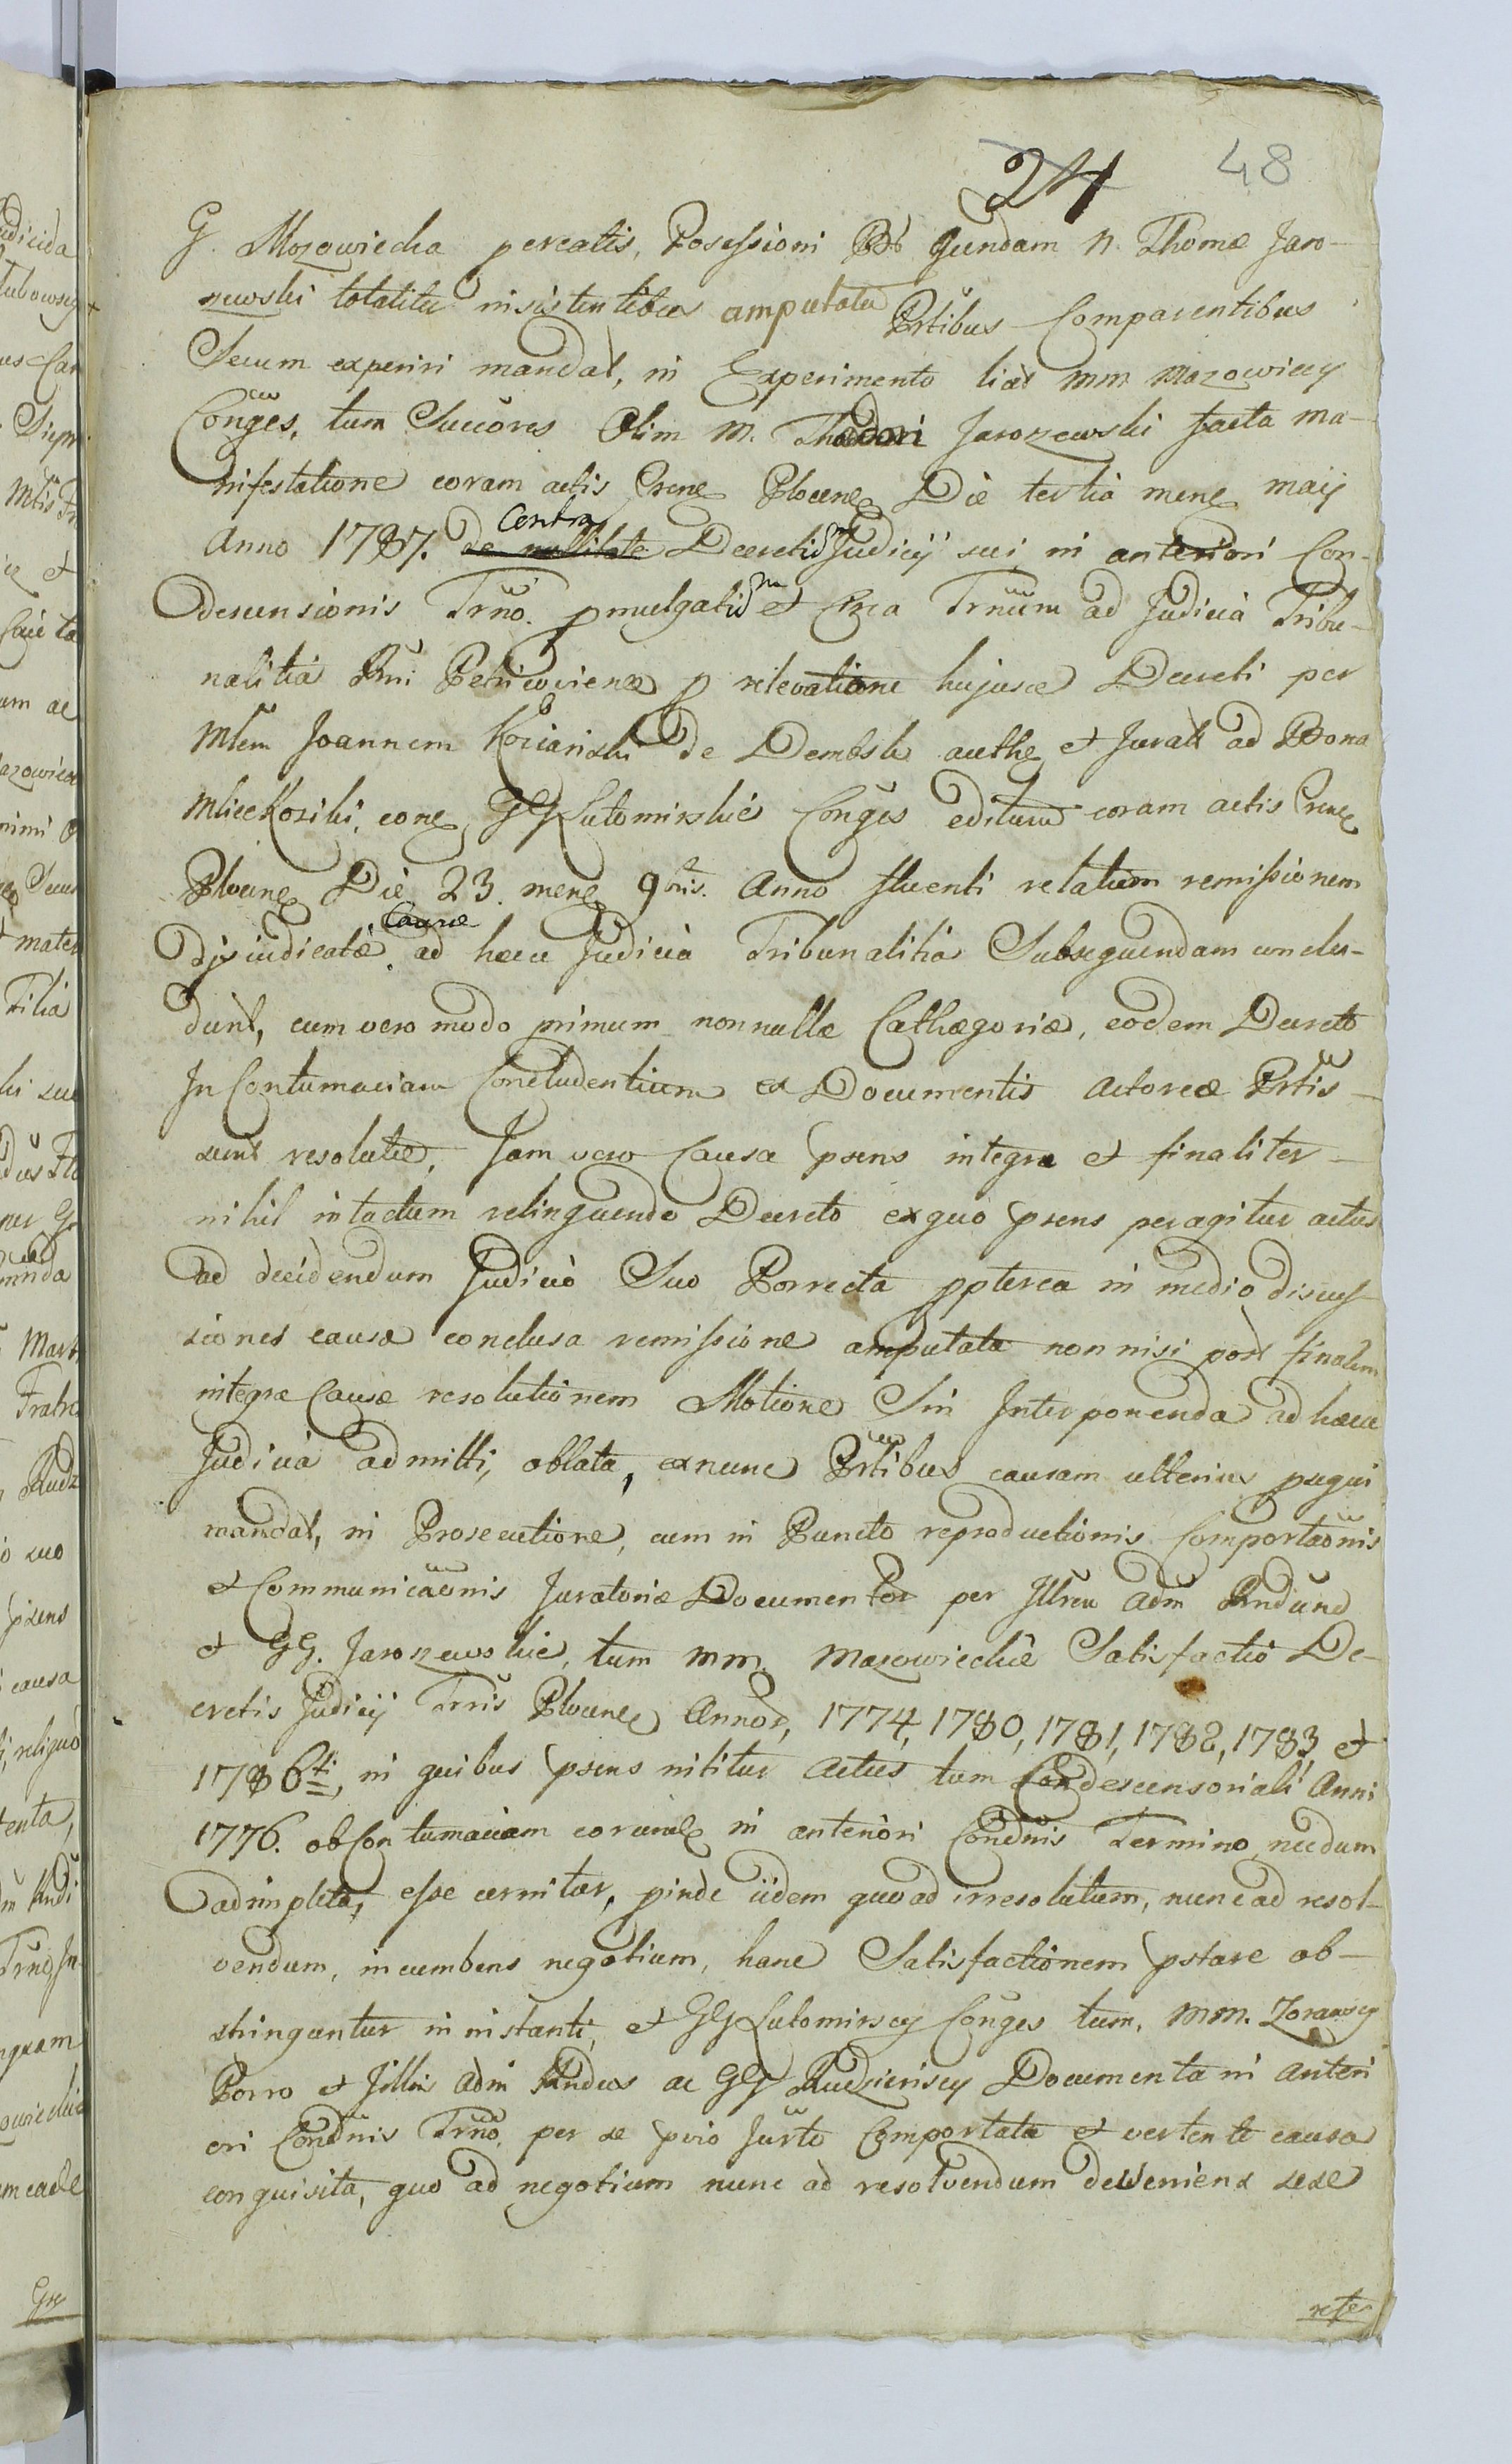 24 48
G. Mozowiecka percatis, Posessioni Bō qundam N. Thomæ Jaro-
zewski totaliter insistentibus amputata Prtibus Comparentibus
Secum experiri mandat, in Experimento licet mm Mazowieccy
Conges, tum Succores Olim M. Theodori Jarozewski facta ma-
nifestatione coram actis Crene Plocene Die tertia mene maij
Anno 1787. de nullitate Contra Decretum Judicij sui in anteriori Con-
descensionis Trño. pmulgatum et Crca Trnum ad Judicia Tribu-
nalitia Rni Petricoviene p relevatione hujusce Decreti per
Mlem Joannem Kocianski de Dembsk authe et Jurat ad Bona
Mlice Kozihi, cone, GG Lutomirskie Conges editum coram actis Crene
Plocene Die 23. mene 9bris. Anno fluenti relatum remissionem
Dijudicatæ Causæ ad hæcce Judicia Tribunalitia Subsequendam conclu-
dunt, cum vero modo primum nonnullæ Cathægoriæ, eodem Decreto
In Contumaciam Concludentium ex Documentis Actoreæ Prtis
sunt resolutæ, Jam vero Causa psens integra et finaliter
nihil intactum relinquendo Decreto exquo psens peragitur actus
ad decidendum Judicio Suo Porrecta ppterea in medio discus-
siones causæ conclusa remissione amputata non nisi post finalem
integræ Causæ resolutionem Motione Sui Interponenda ad hæcce
Judicia admitti, oblata, exnunc Prtibus causam ulterius psequi
mandat, in Prosecutione, cum in Puncto reproductionis Comportaonis
et Communicaonis Juratoriæ Documentor per Jllrem Adm Rndum
et GG. Jarozewskie, tum mm. Mazowieckie Satisfactio De-
cretis Judicij Trris Plocene Annor, 1774, 1780, 1781, 1782, 1783, et
1786ti, in quibus psens nititur Actus tum Condescensoriali Anni
1776. ob Contumaciam eorund in anteriori Condnis Termino, necdum
adimpleta, esse cernitur, pinde iidem quo ad irresolutum, nunc ad resol-
vendum, incumbens negotium, hanc Satisfactionem pstare ob-
stringantur in instanti, et GG Lutomirscy Conges tum, mm. Zorawscy
Porro et Jlln Adm Rndus ac GG Rudzienscy Documenta in anteri
ori Condnis Trño, per se pvio Jurto Comportata et vertente causa
conquisita, quo ad negotium nunc ad resolvendum deveniens sese
refe